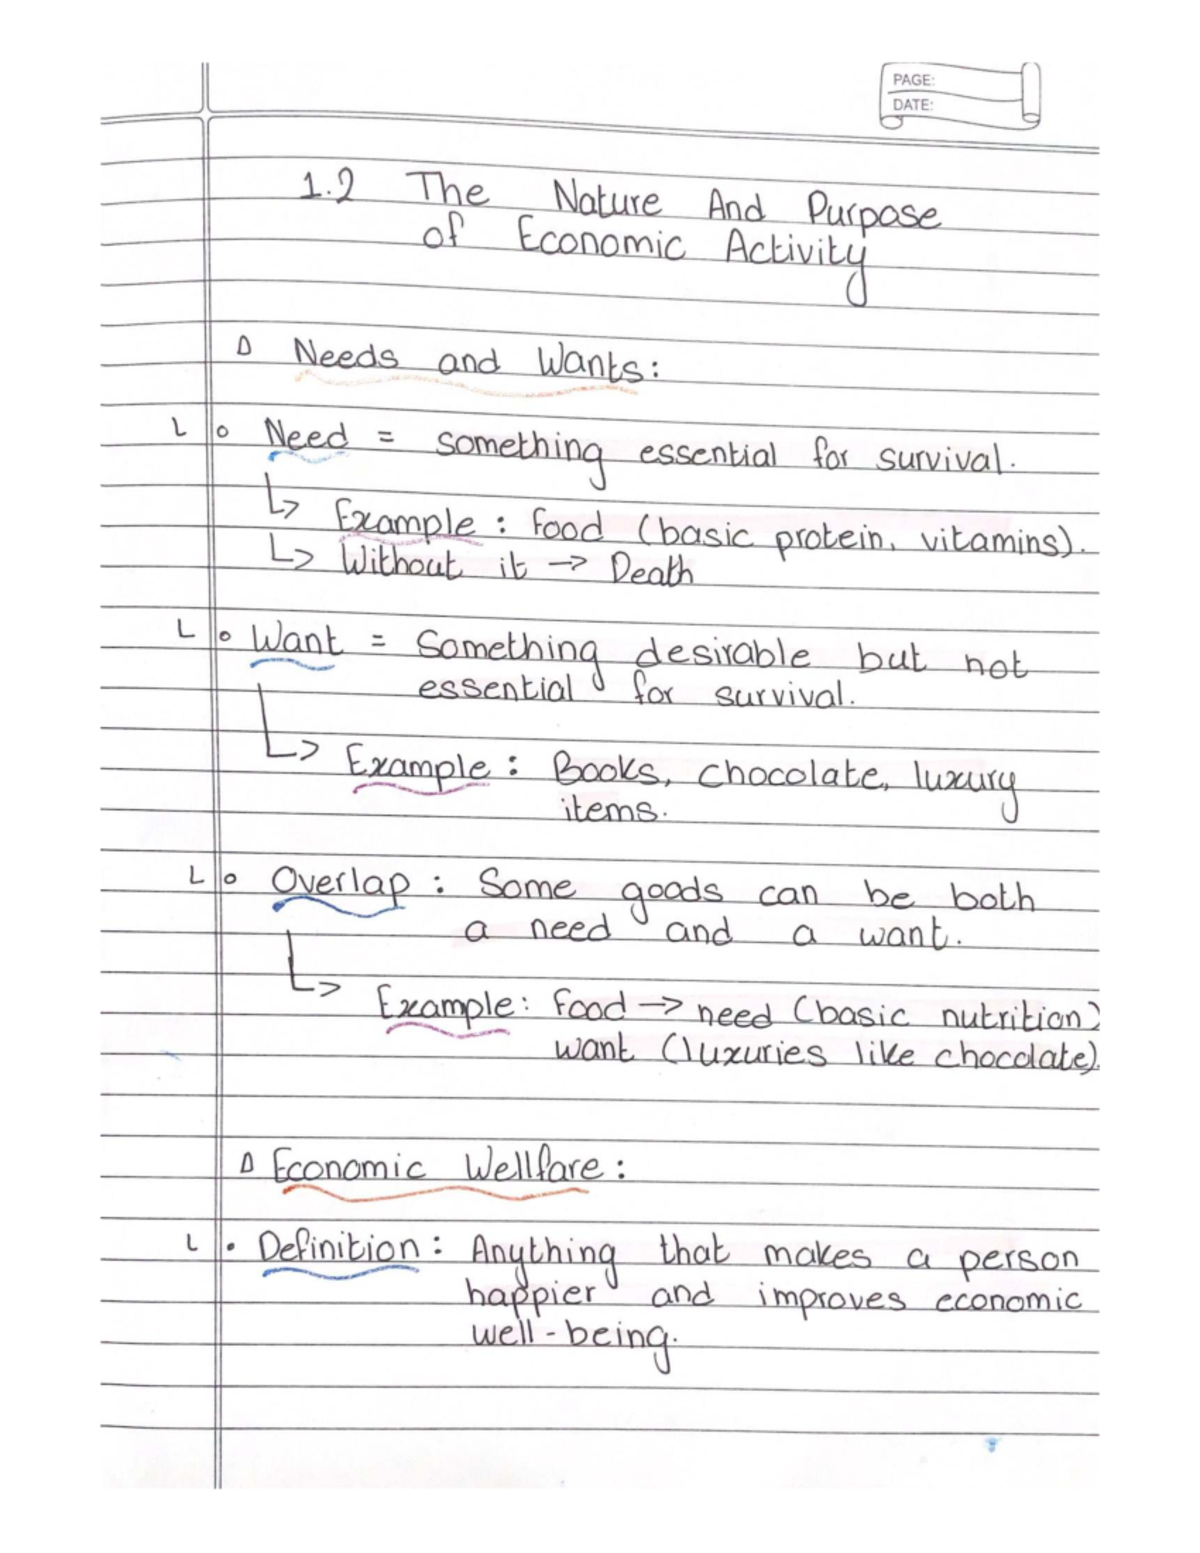 PAGE:
DATE:
1.2 The Nature And Purpose
of Economic Activity
Needs and Wants:
L o Need = something essential for survival.
↳ Example: Food (basic protein, vitamins).
↳ Without it → Death
L o Want = Something desirable but not
essential for survival.
↳ Example: Books, chocolate, luxury
items.
L o Overlap: Some goods can be both
a need and a want.
↳ Example: Food → need (basic nutrition)
want (luxuries like chocolate).
Economic Wellfare:
L • Definition: Anything that makes a person
happier and improves economic
well-being.